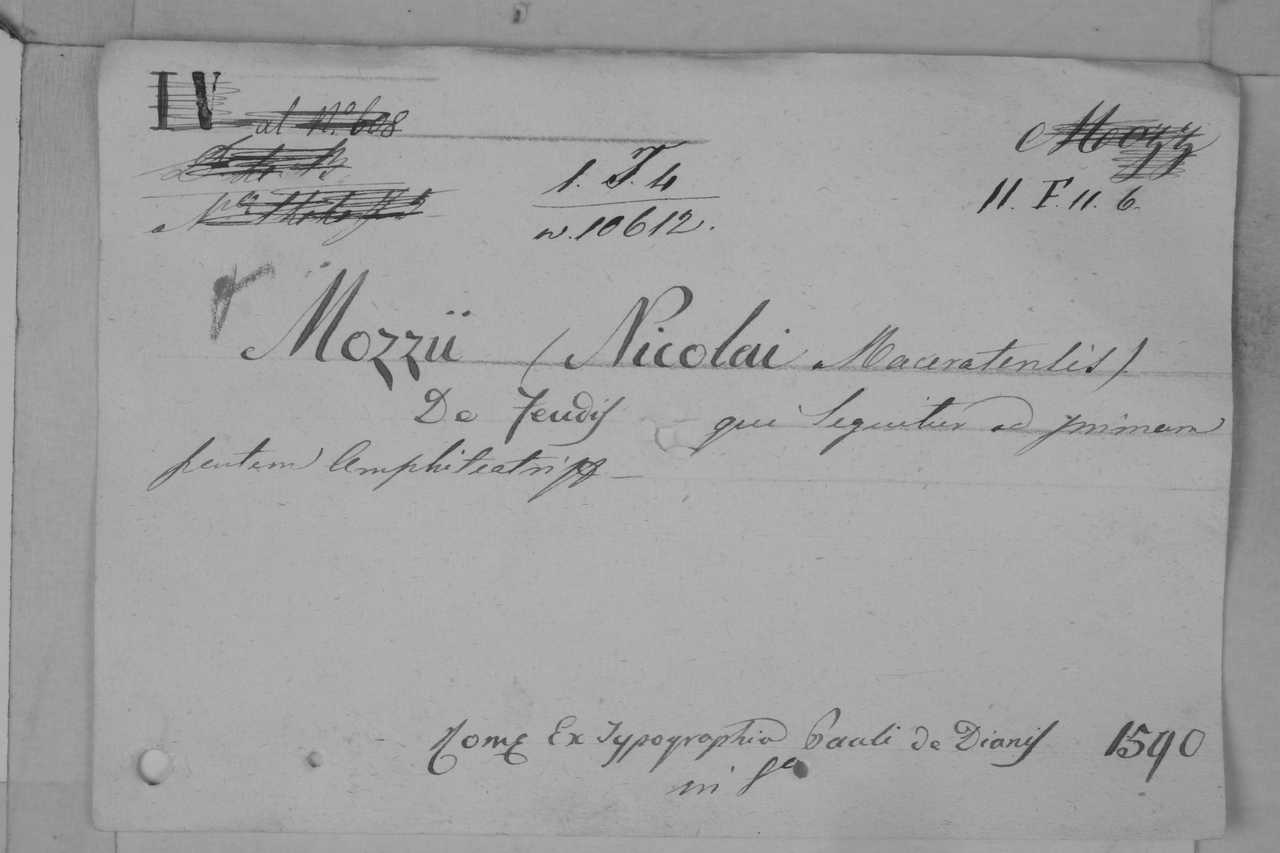 IV al N.° 608
Mozz
1. T. 4
11. F. 11. 6.
n. 10612.
Mozzii (Nicolai Maceratensis)
De Feudis que sequitur ad primam
partem Amphiteatri
Rome Ex Typographia Pauli de Dianis 1590
in